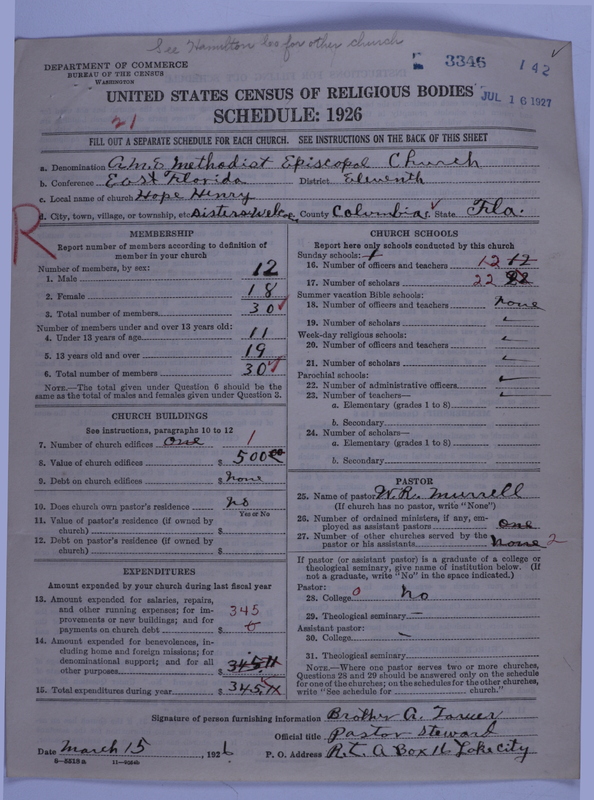 See Hamilton Co for other church
3346
142
DEPARTMENT OF COMMERCE
BUREAU OF THE CENSUS
WASHINGTON
UNITED STATES CENSUS OF RELIGIOUS BODIES
JUL 16 1927
SCHEDULE: 1926
21
FILL OUT A SEPARATE SCHEDULE FOR EACH CHURCH. SEE INSTRUCTIONS ON THE BACK OF THIS SHEET
a. Denomination A.M.E Methodist Episcopal Church
b. Conference East Florida District Eleventh
c. Local name of church Hope Henry
d. City, town, village, or township, etc. Sisters Welcome County Columbia State Fla.
R
MEMBERSHIP
Report number of members according to definition of
member in your church
Number of members, by sex:
1. Male 12
2. Female 18
3. Total number of members 30
Number of members under and over 13 years old:
4. Under 13 years of age 11
5. 13 years old and over 19
6. Total number of members 30
NOTE.—The total given under Question 6 should be the
same as the total of males and females given under Question 3.
CHURCH BUILDINGS
See instructions, paragraphs 10 to 12
7. Number of church edifices One 1
8. Value of church edifices $ 500 00
9. Debt on church edifices $ none
10. Does church own pastor's residence? No
Yes or No
11. Value of pastor's residence (if owned by
church) $
12. Debt on pastor's residence (if owned by
church) $
EXPENDITURES
Amount expended by your church during last fiscal year
13. Amount expended for salaries, repairs,
and other running expenses; for im-
provements or new buildings; and for
payments on church debt $
345
14. Amount expended for benevolences, in-
cluding home and foreign missions; for
denominational support; and for all
other purposes $
15. Total expenditures during year $ 345
CHURCH SCHOOLS
Report here only schools conducted by this church
Sunday schools: 1
16. Number of officers and teachers 12 12
17. Number of scholars 22 22
Summer vacation Bible schools:
18. Number of officers and teachers none
19. Number of scholars
Week-day religious schools:
20. Number of officers and teachers
21. Number of scholars
Parochial schools:
22. Number of administrative officers
23. Number of teachers—
a. Elementary (grades 1 to 8)
b. Secondary
24. Number of scholars—
a. Elementary (grades 1 to 8)
b. Secondary
PASTOR
25. Name of pastor W. R. Murrell
(If church has no pastor, write "None")
26. Number of ordained ministers, if any, em-
ployed as assistant pastors One
27. Number of other churches served by the
pastor or his assistants None 2
If pastor (or assistant pastor) is a graduate of a college or
theological seminary, give name of institution below. (If
not a graduate, write "No" in the space indicated.)
Pastor:
28. College 0 No
29. Theological seminary —
Assistant pastor:
30. College —
31. Theological seminary
NOTE.—Where one pastor serves two or more churches,
Questions 28 and 29 should be answered only on the schedule
for one of the churches; on the schedules for the other churches,
write "See schedule for church."
Signature of person furnishing information Brother A.
Official title Pastor Steward
Date March 15, 1926 P. O. Address Rt. A Box 16 Lake City
8-5518a